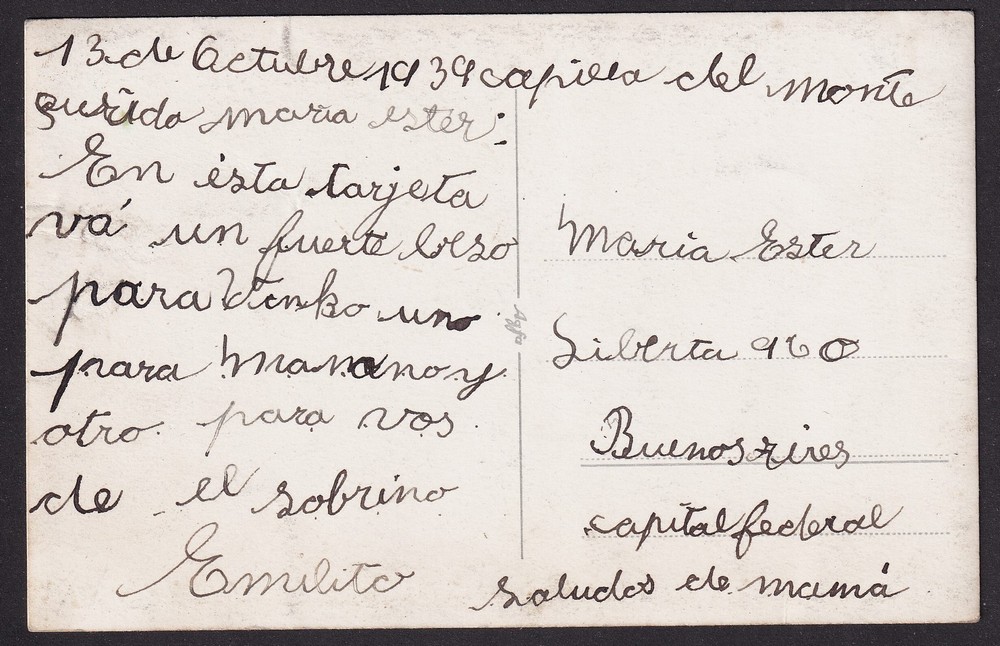 13 de Octubre 1939 capilla del monte
querido maria ester:
En ésta tarjeta
vá un fuerte beso
para uno
para y
otro para vos
de el sobrino
Emilito
Agfa
Maria Ester
Liberta 960
Buenos Aires
capital federal
saludos de mamá